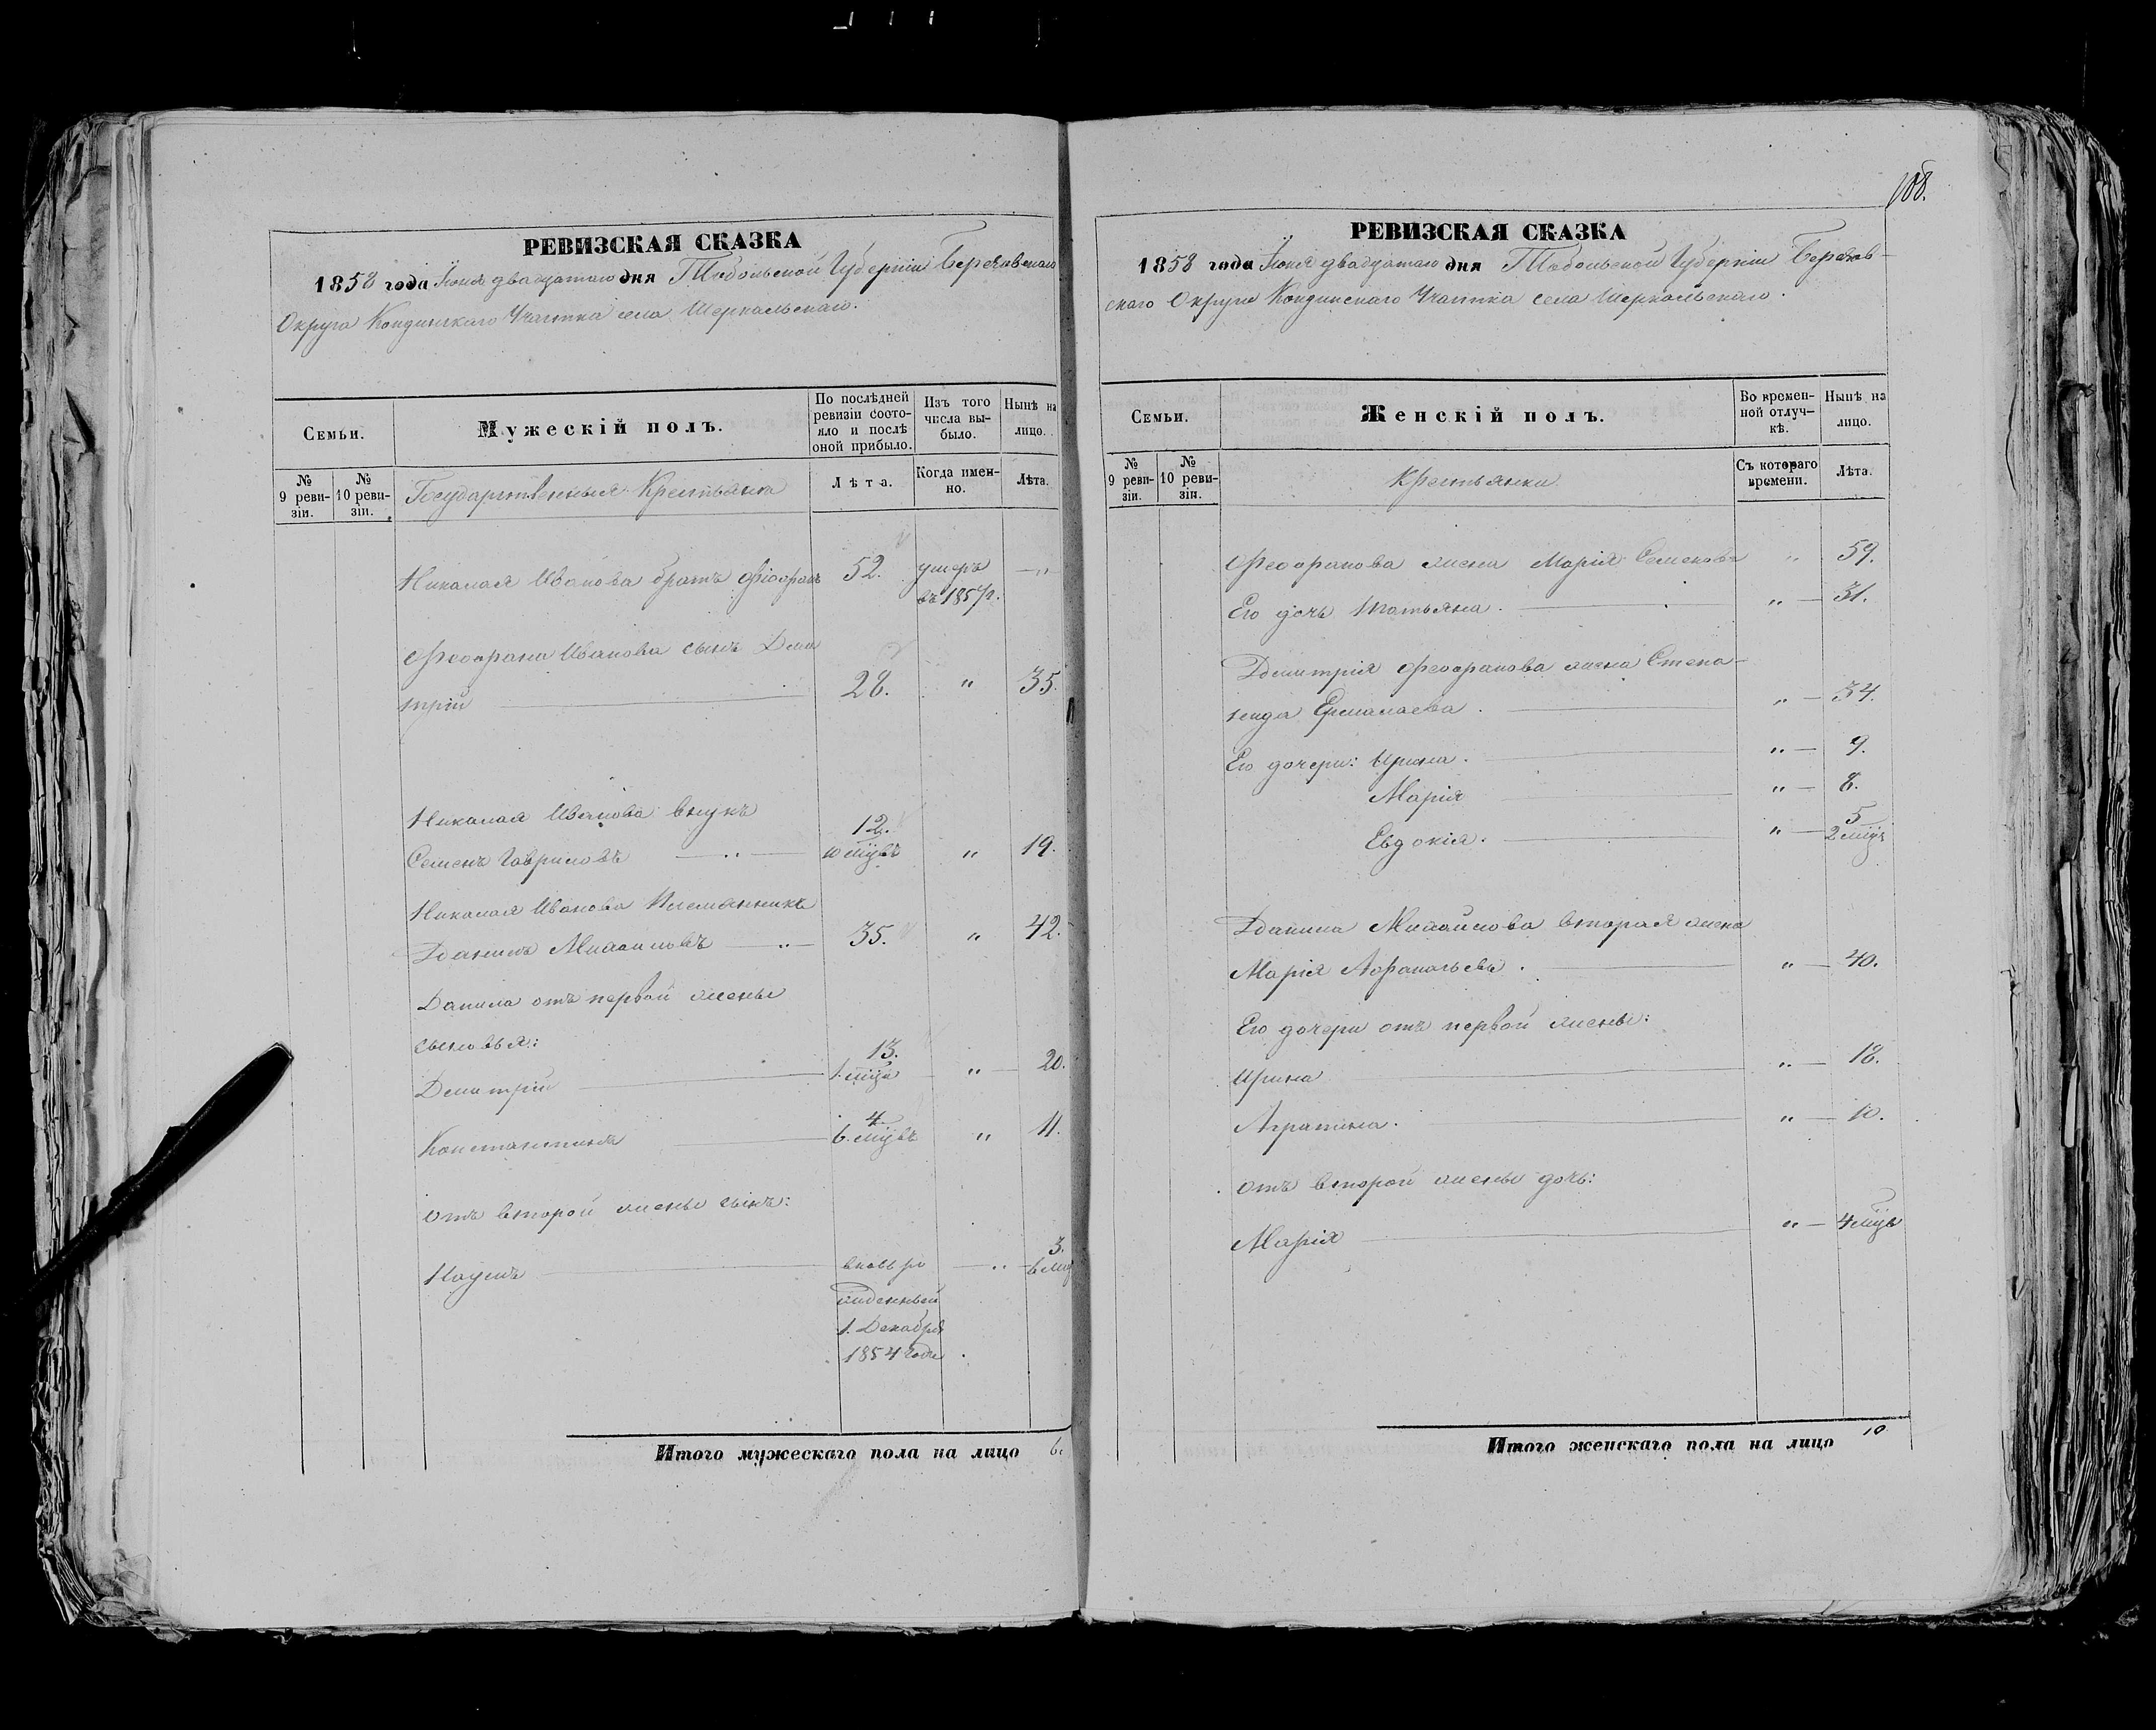 108.
РЕВИЗСКАЯ СКАЗКА
1858 года Іюня двадцатаго дня Тобольской Губерніи Березовскаго
Округа Кондинскаго Участка села Шеркальскаго.
Семьи.
Мужескій полъ.
По послѣдней ревизіи состояло и послѣ оной прибыло.
Изъ того числа выбыло.
Нынѣ на лицо.
№ 9 ревизіи.
№ 10 ревизіи.
Государственныя Крестьяна
Лѣта.
Когда именно.
Лѣта.
Николая Иванова братъ Феофанъ 52. умеръ — „
въ 1857 г.
Феофана Иванова сынъ Дми
трій 28. „ 35.
Николая Иванова внукъ 12.
Семенъ Гавриловъ — „ — 10 мцвъ „ 19.
Николая Иванова Племянникъ
Данилъ Михайловъ — „ — 35. „ 42.
Данила отъ первой жены
сыновья: 13.
Дмитрій 1. мца „ 20.
4.
Константинъ 6. мцвъ „ 11.
отъ второй жены сынъ:
3.
Наумъ вновь ро — „ — 6 мц
жденный
1. Декабря
1854 года.
Итого мужескаго пола на лицо 6.
РЕВИЗСКАЯ СКАЗКА
1858 года Іюня двадцатаго дня Тобольской Губерніи Березов-
скаго Округа Кондинскаго Участка села Шеркальскаго.
Семьи.
Женскій полъ.
Во временной отлучкѣ.
Нынѣ на лицо.
№ 9 ревизіи.
№ 10 ревизіи.
Крестьянки
Съ котораго времени.
Лѣта.
Феофанова жена Марія Семенова „ 59.
Его дочь Татьяна. „ — 31.
Дмитрія Феофанова жена Степа-
нида Ермалаева. „ — 34.
Его дочери: Ирина. „ — 9.
Марія „ — 8.
5
Евдокія. „ — 2 мцъ
Данила Михайлова вторая жена
Марія Афанасьева. „ — 40.
Его дочери отъ первой жены:
Ирина „ — 18.
Аграпина. „ — 10.
отъ второй жены дочь:
Марія „ — 4 мцъ
Итого женскаго пола на лицо 10